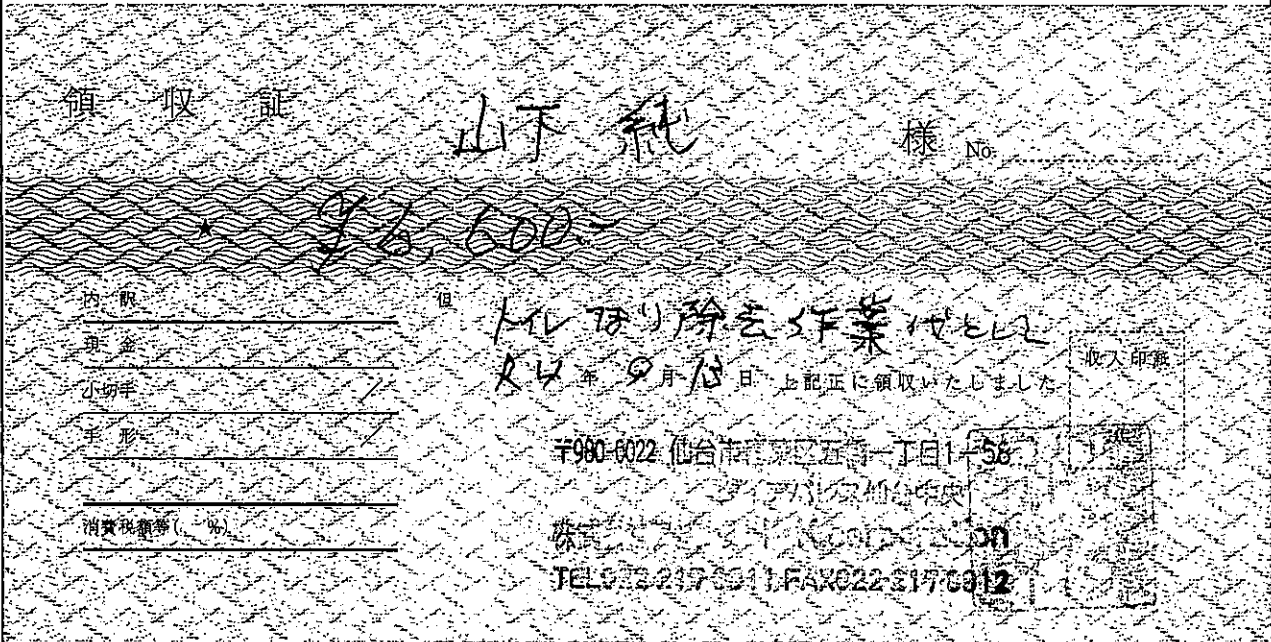 領 収 証 山下 純 様 No.
★ ¥6,600.-
内 訳
現 金
小切手
手 形
消費税額等( %)
但 トイレつまり除去作業代として
R4 年 9 月 13 日 上記正に領収いたしました
収入印紙
〒980-0022 仙台市青葉区五橋一丁目1-58
ダイアパレス仙台中央
TEL022-217-6811 FAX022-217-6812